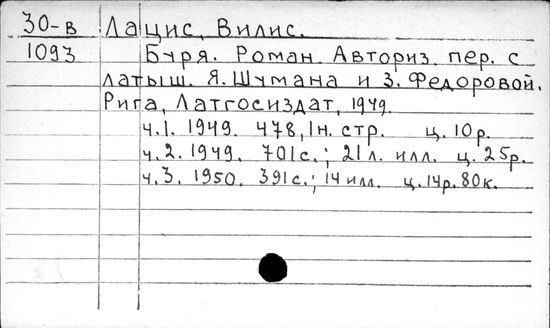 30-в Лацис, Вилис.
1093 Буря. Роман. Авториз. пер. с
латыш. Я. Шумана и З. Федоровой.
Рига, Латгосиздат, 1949.
ч.1. 1949. 478, 1н. стр. ц. 10р.
ч.2. 1949. 701с.; 21л. илл. ц. 25р.
ч.3. 1950. 391с.; 14 илл. ц. 14р. 80к.